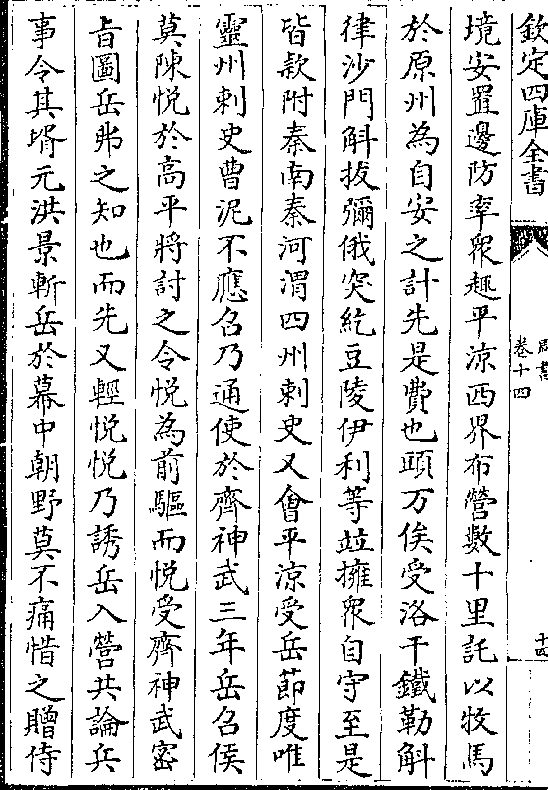 欽定四庫全書
周書
卷十四
十四
境安置邊防率眾趣平涼西界布營數十里託以牧馬
於原州為自安之計先是費也頭万俟受洛干鐵勒斛
律沙門斛拔彌俄突紇豆陵伊利等並擁眾自守至是
皆款附秦南秦河渭四州刺史又會平涼受岳節度唯
靈州刺史曹泥不應召乃通使於齊神武三年岳召侯
莫陳悅於高平將討之令悅為前驅而悅受齊神武密
旨圖岳弗之知也而先又輕悅悅乃誘岳入營共論兵
事令其壻元洪景斬岳於幕中朝野莫不痛惜之贈侍